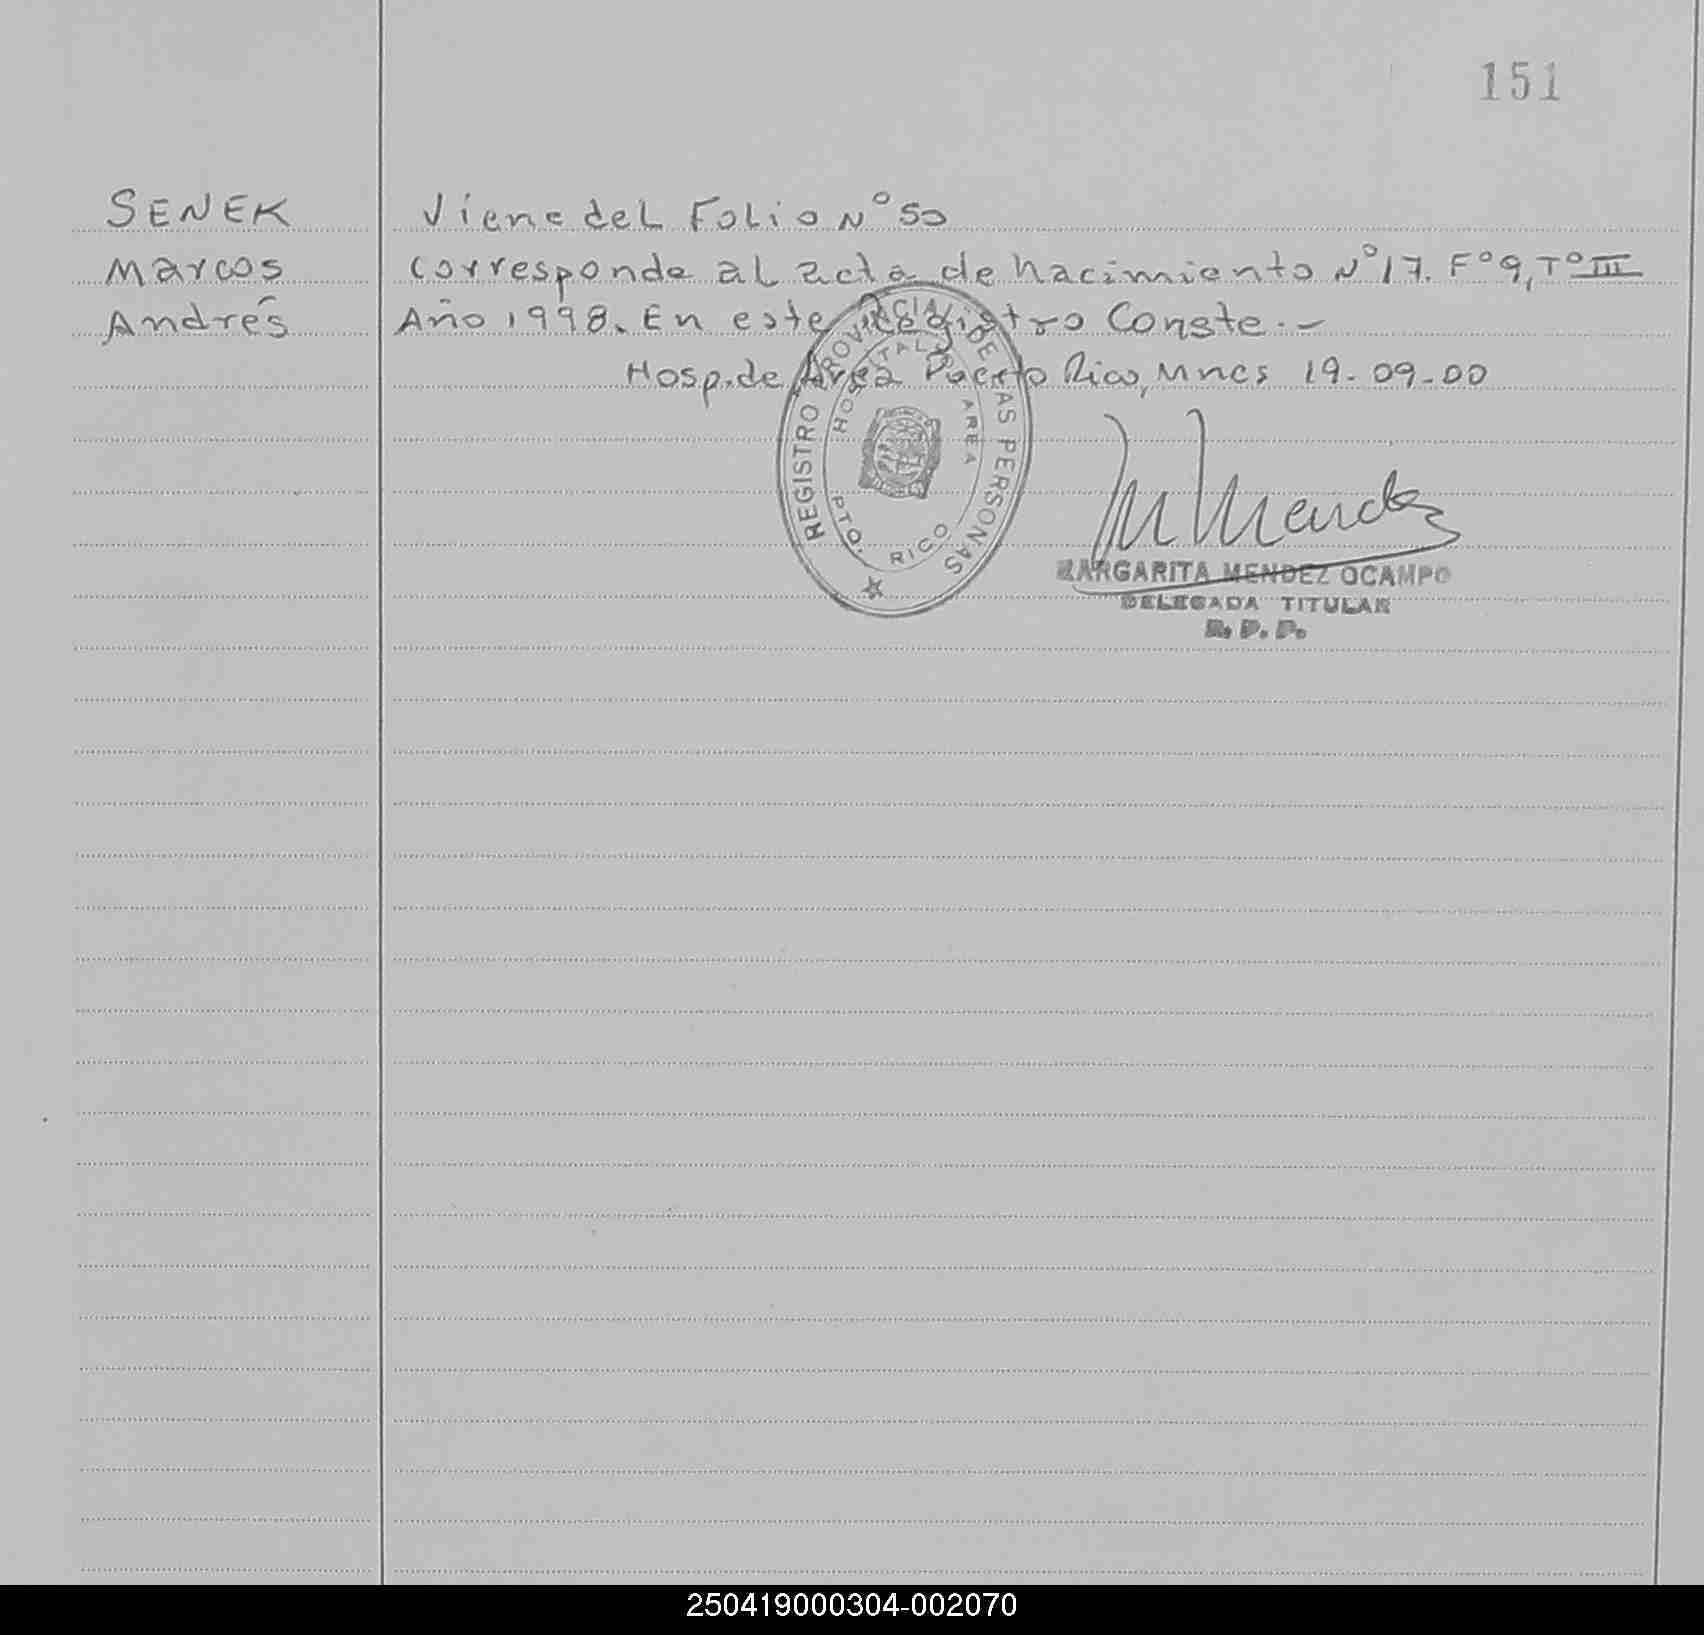 151
SENEK
Marcos
Andrés
Viene del Folio Nº 50
Corresponde al acta de nacimiento Nº 17. Fº 9, Tº III
Año 1998. En este Registro Conste.-
Hosp. de Área Puerto Rico, Mnes 19-09-00
REGISTRO PROVINCIAL DE LAS PERSONAS
HOSPITAL AREA
PTO. RICO
M Mendez
MARGARITA MENDEZ OCAMPO
DELEGADA TITULAR
R. P. P.
250419000304-002070